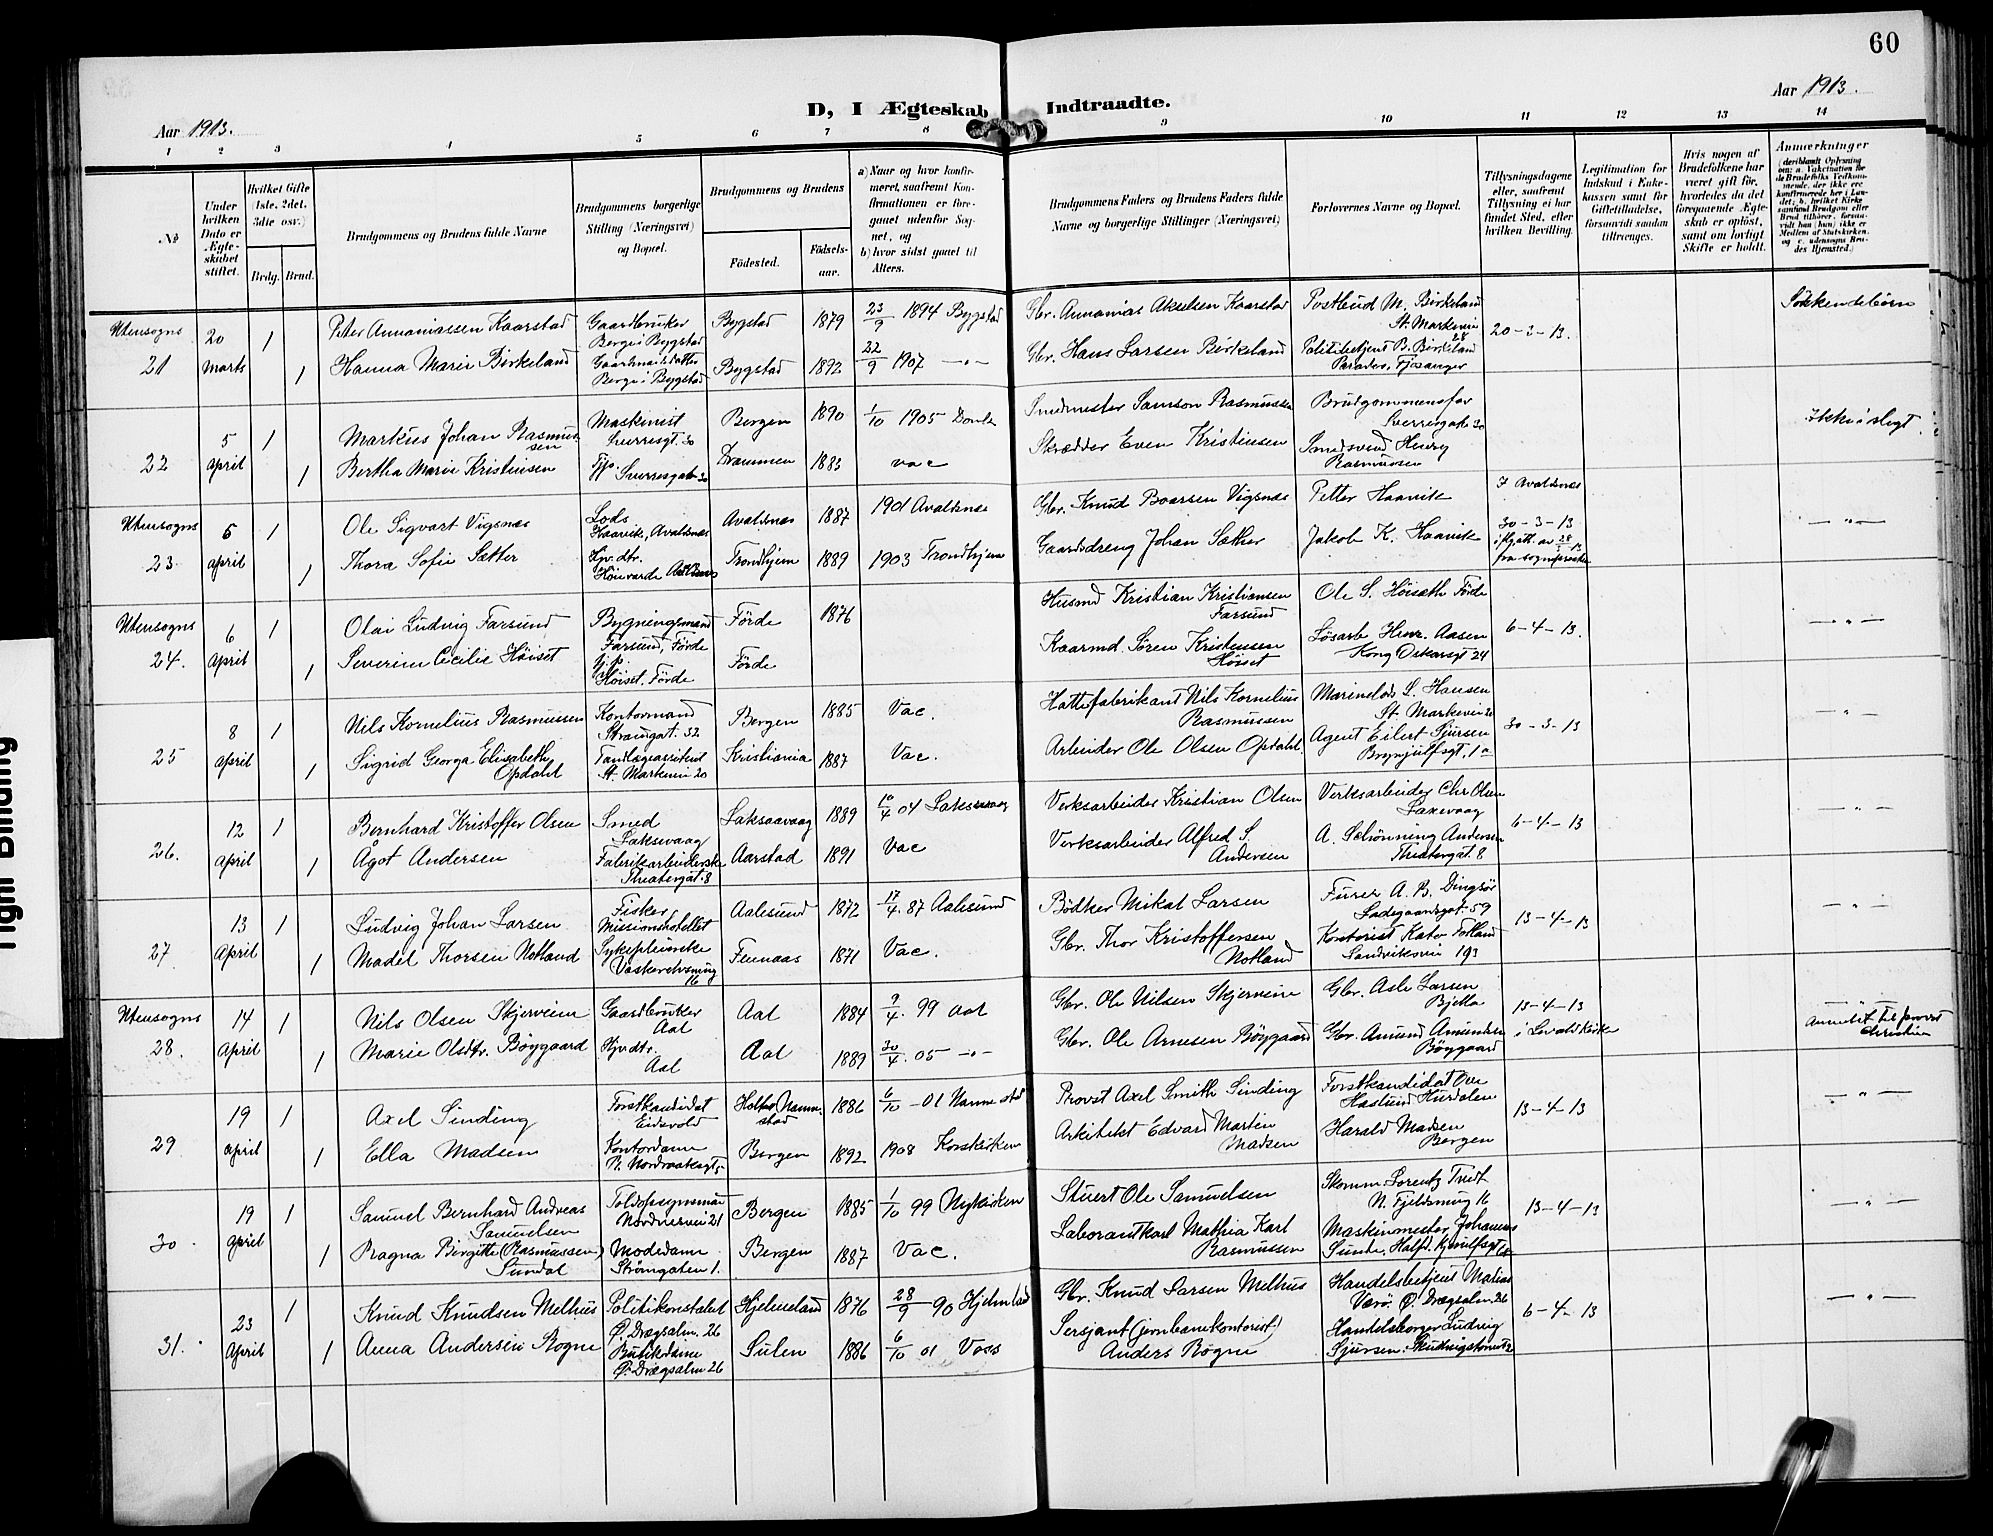 60
Aar 1913.
D, I Ægteskab Indtraadte.
Aar 1913.
1 2 3 4 5 6 7 8 9 10 11 12 13 14
No
Under hvilken Dato er Ægteskabet stiftet.
Hvilket Gifte (1ste, 2det, 3die osv.)
Brdg. Brud.
Brudgommens og Brudens fulde Navne
Brudgommens borgerlige Stilling (Næringsvei) og Bopæl.
Brudgommens og Brudens
Fødested. Fødselsaar.
a) Naar og hvor konfirmeret, saafremt Konfirmationen er foregaaet udenfor Sognet, og
b) hvor sidst gaaet til Alters.
Brudgommens Faders og Brudens Faders fulde Navne og borgerlige Stillinger (Næringsvei)
Forlovernes Navne og Bopæl.
Tillysningsdagene eller, saafremt Tillysning ei har fundet Sted, efter hvilken Bevilling.
Legitimation for Indskud i Enkekassen samt for Giftetilladelse, forsaavidt saadan tiltrænges.
Hvis nogen af Brudefolkene har været gift før, hvorledes da det foregaaende Ægteskab er opløst, samt om lovligt Skifte er holdt.
Anmærkninger
(deriblandt Oplysning om: a. Vakcination for de Brudefolks Vedkommende, der ikke ere konfirmerede her i Landet; b. hvilket Kirkesamfund Brudgom eller Brud tilhører, forsaavidt han (hun) ikke er Medlem af Statskirken, og c. udensogns Brudes Hjemsted.)
Utensogns
21
20 Marts
1
1
Peter Annaniassen Kaarstad
Hanna Marie Birkeland
Gaardbruker
Berge i Bygstad
Gaardmandsdatter
Berge i Bygstad
Bygstad 1879 23/9 1894 Bygstad
Bygstad 1892 22/9 1907 -"-
Gbr. Annanias Akselsen Kaarstad
Gbr. Hans Larsen Birkeland
Postbud M. Birkeland
St. Markevei 28
Politibetjent B. Birkeland
Paradis, Fjøsanger
20-3-13.
Søskendebørn
22
5 April
1
1
Markus Johan Rasmussen
Bertha Marie Kristiansen
Maskinist
Sverresgt. 30
Tjp. Sverresgate 30
Bergen 1890 1/10 1905 Domk
Drammen 1883 vac
Smedmester Samson Rasmussen
Skrædder Even Kristiansen
Brudgommens far
Sverresgate 30
Smedsvend Henry
Rasmussen
Ikke i slegt
Utensogns
23
5 April
1
1
Ole Sigvart Vigsnæs
Thora Sofie Sæther
Lods
Haavik, Avaldsnæs
Hjv. dtr.
Høievarde Avaldsnæs
Avaldsnæs 1887 1901 Avaldsnæs
Trondhjem 1889 1903 Trondhjem
Gbr. Knud Boarsen Vigsnæs
Gaardsdreng Johan Sæther
Petter Haavik
Jakob K. Haavik
I Avaldsnæs
30-3-13
iflg. att. av 28/3 13
fra sogneprest
-"-
Utensogns
24.
6 April
1
1
Olai Ludvig Farsund
Severine Cecilie Høiset
Bygningsmand
Farsund, Førde
Tjp.
Høiset, Førde
Førde 1876
Førde
Husmd Kristian Kristiansen
Farsund
Kaarmd. Søren Kristensen
Høiset
Ole S. Høiseth Førde
Løsarb. Henr. Aasen
Kong Oskarsgt 24
6-4-13.
-"-
25
8 April
1
1
Nils Kornelius Rasmussen
Sigrid Georga Elisabeth
Opdahl
Kontormand
Strangat. 32
Tandlægeassistent
St. Markevei 20
Bergen 1885 Vac.
Kristiania 1887 Vac.
Hattefabrikant Nils Kornelius
Rasmussen
Arbeider Ole Olsen Opdahl
Marinelods L. Hansen
St. Markevei 20
Agent Eilert Sjursen
Brynjulfsgt. 1a
30-3-13
-"-
26.
12 April
1
1
Bernhard Kristoffer Olsen
Ågot Andersen
Smed
Laksevaag
Fabrikarbeiderske
Theatergat. 8
Laksevaag 1889 10/4 04 Laksevaag
Aarstad 1891 Vac
Verksarbeider Kristian Olsen
Verksarbeider Alfred S.
Andersen
Verksarbeider Chr Olsen
Laxevaag
A. Schønning Andersen
Theatergat. 8
6-4-13
-"-
27
13 April
1
1
Ludvig Johan Larsen
Madel Thorsen Notland
Fisker
Missionshotellet
Sykepleierske
Vaskerelvsmug
16
Aalesund 1872 17/4. 87 Aalesund
Fennaas 1871 Vac.
Bødker Mikal Larsen
Gbr. Thor Kristoffersen
Notland
Furer A. B. Dingsør
Ladegaardsgat. 59
Kontorist Kato Fotland
Sandviksvei 193
13-4-13
-"-
Utensogns
28.
14 April
1
1
Nils Olsen Skjerveim
Marie Olsdtr. Bøygaard
Gaardbruker
Aal
Hjv. dtr.
Aal
Aal 1884 9/4. 99 Aal
Aal 1889 30/4. 05 -"-
Gbr. Ole Nilsen Skjerveim
Gbr. Ole Arnesen Bøygaard
Gbr. Asle Larsen
Bjella
Gbr. Amund Amundsen
Bøygaard
13-4-13
Anmeldt til provst
Christie
29
19 April
1
1
Axel Sinding
Ella Madsen
Forstkandidat
Eidsvold
Kontordame
R. Nordraaksgt.
Holter Nannestad 1886 6/10 -01 Nannestad
Bergen 1892 1908 Korskirken
Provst Axel Smith Sinding
Arkitekt Edvard Martin
Madsen
Forstkandidat Ove
Haslund Hurdalen
Harald Madsen
Bergen
13-4-13
-"-
30.
19 April
1
1
Samuel Bernhard Andreas
Samuelsen
Ragna Birgitte (Rasmussen)
Sundal
Toldopsynsmand
Nordnesvei 21
Modedame
Strømgaten 1.
Bergen 1885 1/10 99 Nykirken
Bergen 1887 Vac.
Stuert Ole Samuelsen
Laborantkarl Mathia Karl
Rasmussen
Skomm. Lorentz Tvedt
N. Fjeldsmug 16
Maskinmester Johannes
Sunde, Halfd. Kjerulfsgt
13-4-13
-"-
31.
23 April
1
1
Knud Knudsen Melhus
Anna Andersen Rogne
Politikonstabel
Ø. Drægsalm. 26
Butikdame
Ø. Drægsalm 26
Hjelmeland 1876 28/9 -90 Hjelmeland
Sulen 1886 6/10 01 Voss
Gbr. Knud Larsen Melhus
Sersjant (jernbanekontorist)
Anders Rogne
Handelsbetjent Matias
Værø. Ø. Drægsalm. 26
Handelsborger Ludvig
Sjursen.
6-4-13
-"-
Tight Binding